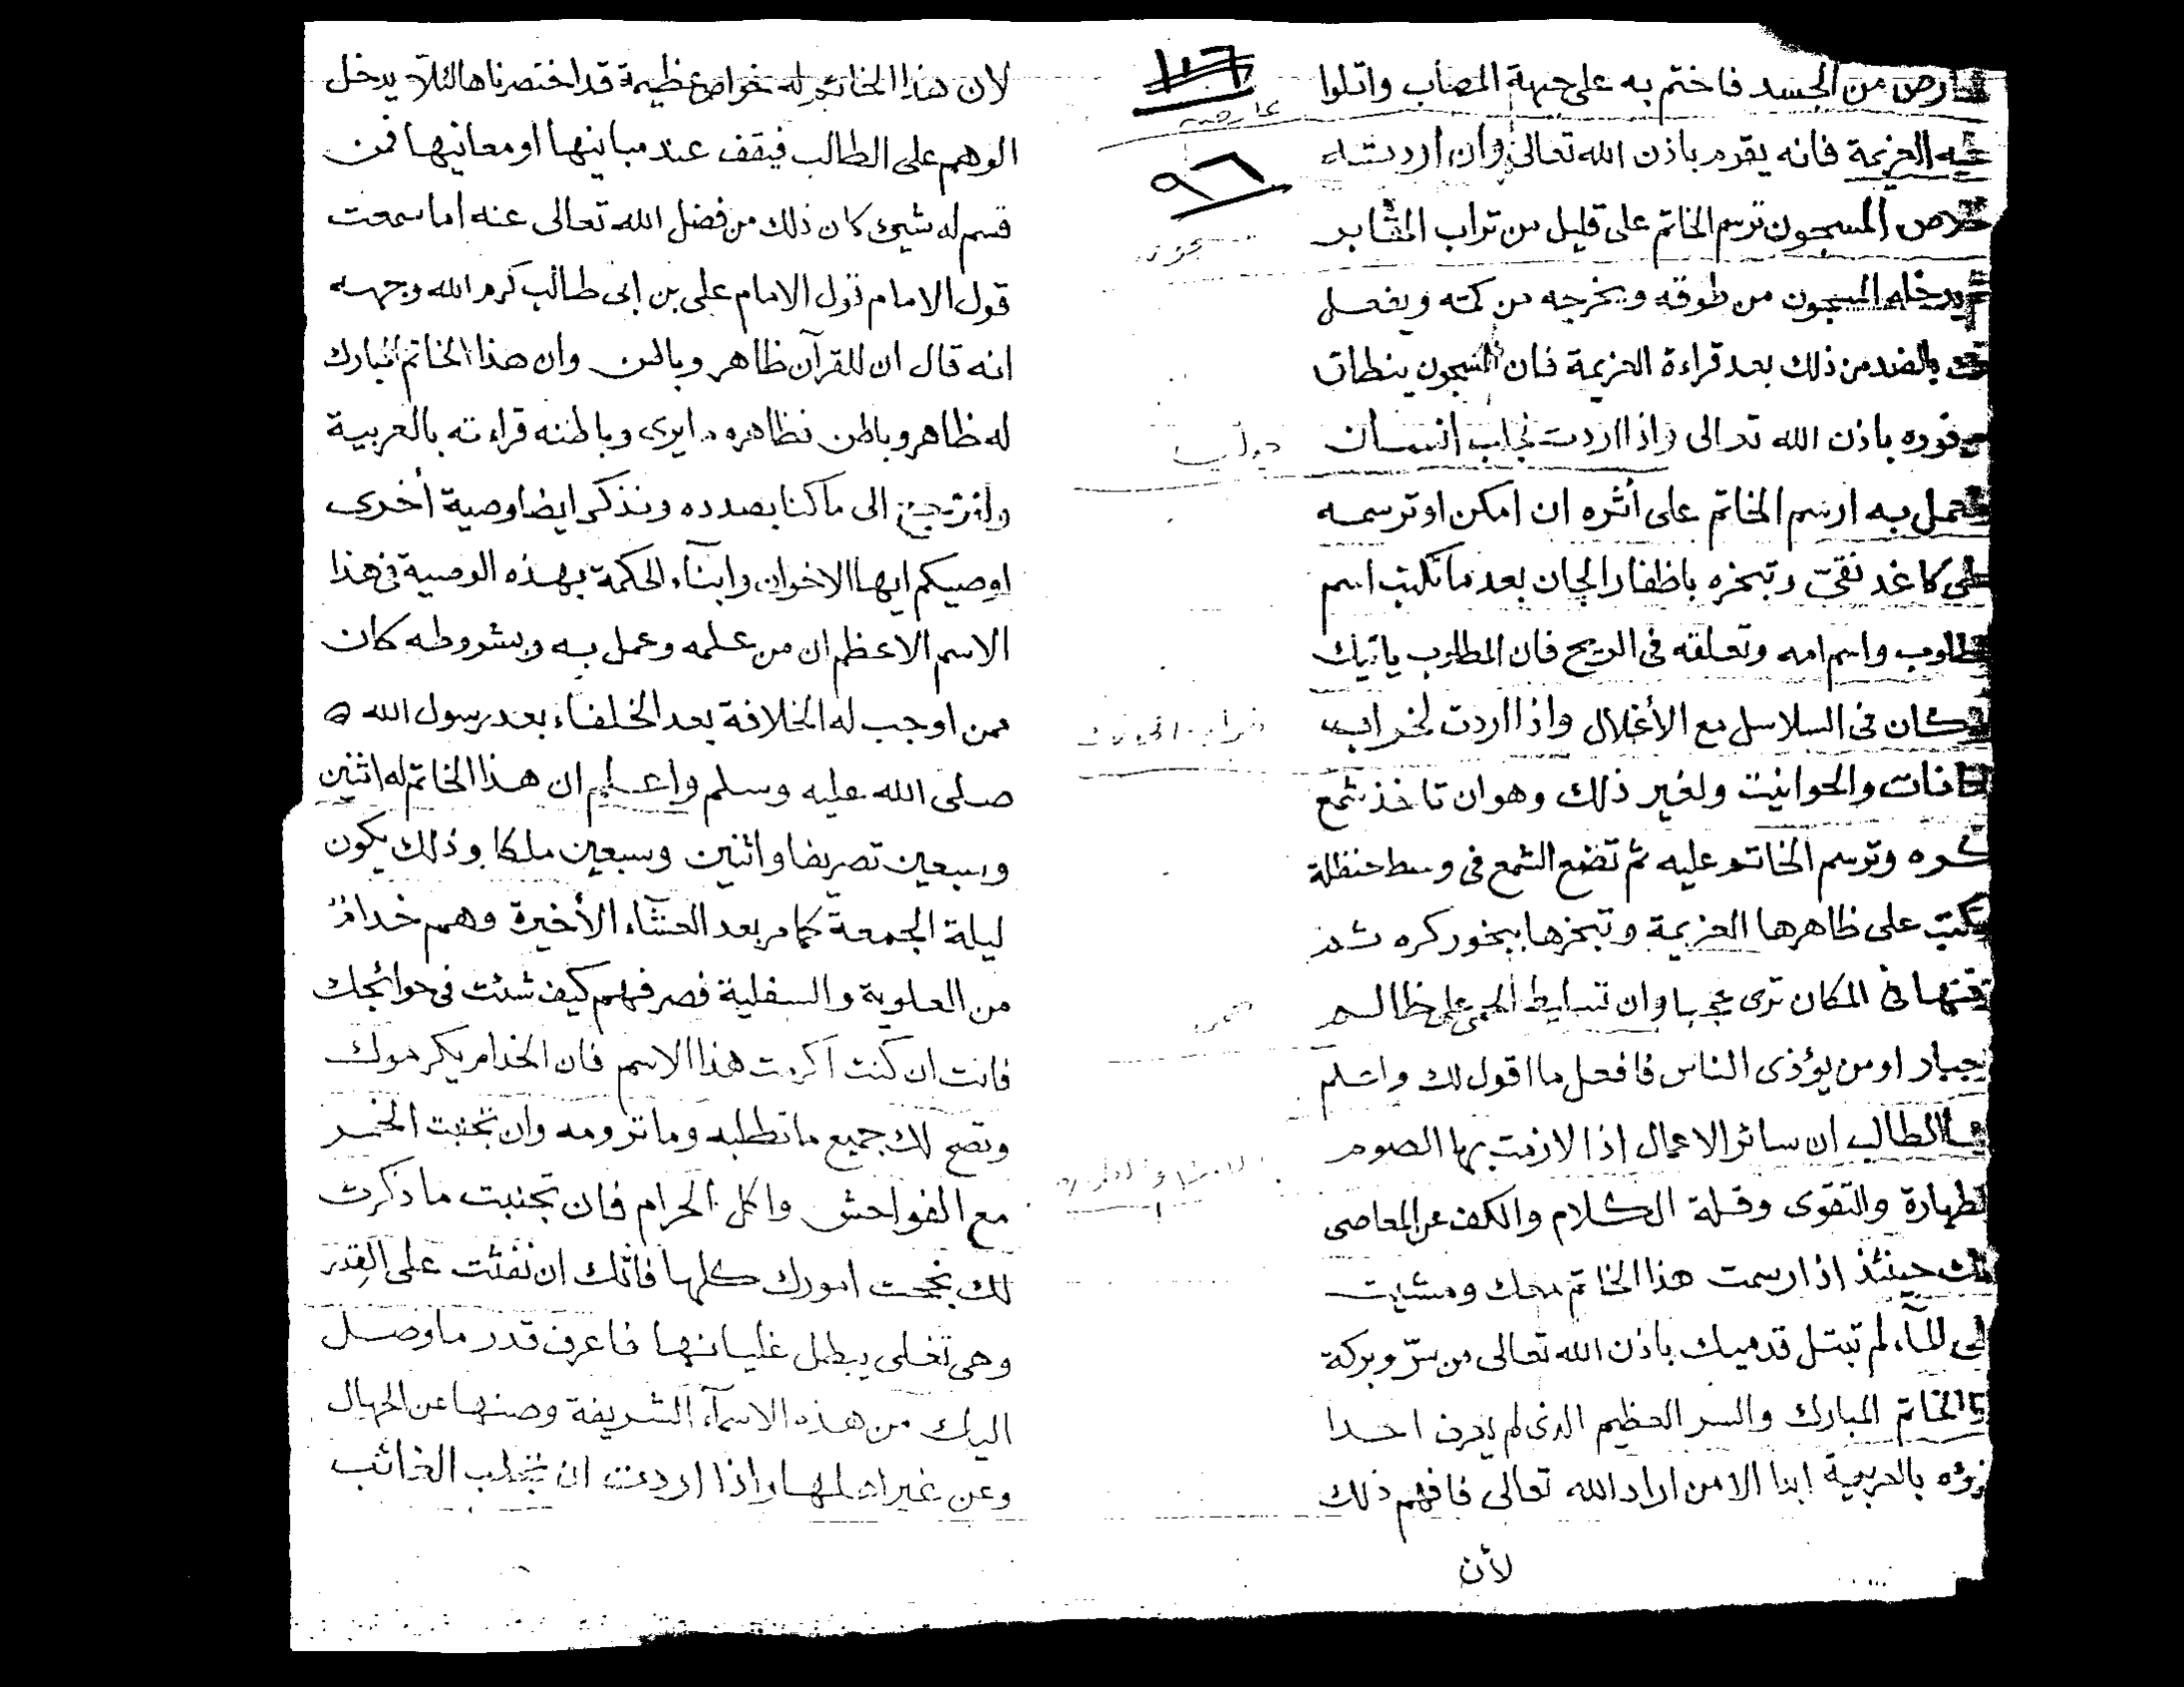 من الجسد فاختم به على جبهة المصاب واتلوا
العزيمة فانه يقوم باذن الله تعالى وان اردت
خلاص المسجون ترسم الخاتم على قليل من تراب المقابر
المسجون من طوقه ويخرجه من كمه ويفعل
بالضد من ذلك بعد قراءة العزيمة فان المسجون ينطلق
فوره باذن الله تعالى واذا اردت تجلب انسان
تعمل به ارسم الخاتم على أثره ان امكن او ترسمه
على كاغد نقىّ وتبخره باظفار الجان بعد ما تكتب اسم
واسم امه وتعلقه فى الريح فان المطلوب ياتيك
كان فى السلاسل مع الأغلال واذا اردت لخراب
والحوانيت ولغير ذلك وهو ان تاخذ شمع
وترسم الخاتم عليه ثم تضع الشمع فى وسط حنظلة
على ظاهرها العزيمة وتبخرها ببخور كره
فى المكان ترى عجبا وان تسليط الحمى على ظالم
جبار او من يؤذى الناس فافعل ما اقول لك واعلم
الطالب ان سائر الاعمال اذا لازمت بها الصوم
والتقوى وقلة الكلام والكف عن المعاصى
حينئذ اذا رسمت هذا الخاتم معك ومشيت
المآء لم تبتل قدميك باذن الله تعالى من سرّ وبركة
الخاتم المبارك والسر العظيم الذى لم يعرف احدا
بالعربية ابدا الا من اراد الله تعالى فافهم ذلك
لأن
١١٦
عارضه
٩٦
لان هذا الخاتم له خواص عظيمة قد اختصرناها لئلا يدخل
الوهم على الطالب فيقف عند مبانيها او معانيها فمن
قسم له شيئ كان ذلك من فضل الله تعالى عنه اما سمعت
قول الامام قول الامام على بن ابى طالب كرم الله وجهه
انه قال ان للقرآن ظاهر وباطن وان هذا الخاتم المبارك
له ظاهر وباطن فظاهره ما يرى وباطنه قراءته بالعربية
الى ما كنا بصدده ونذكر ايضا وصية أخرى
اوصيكم ايها الاخوان وابنآء الحكمة بهذه الوصية فى هذا
الاسم الاعظم ان من علمه وعمل به وبشروطه كان
ممن اوجب له الخلافة بعد الخلفاء بعد رسول الله
صلى الله عليه وسلم واعلم ان هذا الخاتم له اثنين
وسبعين تصريفا واثنين وسبعين ملكا وذلك يكون
ليلة الجمعة كما مر بعد العشآء الأخيرة وهم خدام
من العلوية والسفلية فصرفهم كيف شئت فى حوائجك
فانت ان كنت اكرمت هذا الاسم فان الخدام يكرموك
وتصح لك جميع ما تطلبه وما ترومه وان تجنبت الخمر
مع الفواحش واكل الحرام فان تجنبت ما ذكرت
لك نجحت امورك كلها فانّك ان نفثت على القِدر
وهى تغلى يبطل غليانها فاعرف قدر ما وصل
اليك من هذه الاسمآء الشريفة وصنها عن الجهال
وعن غير اهلها واذا اردت ان تجلب الغائب